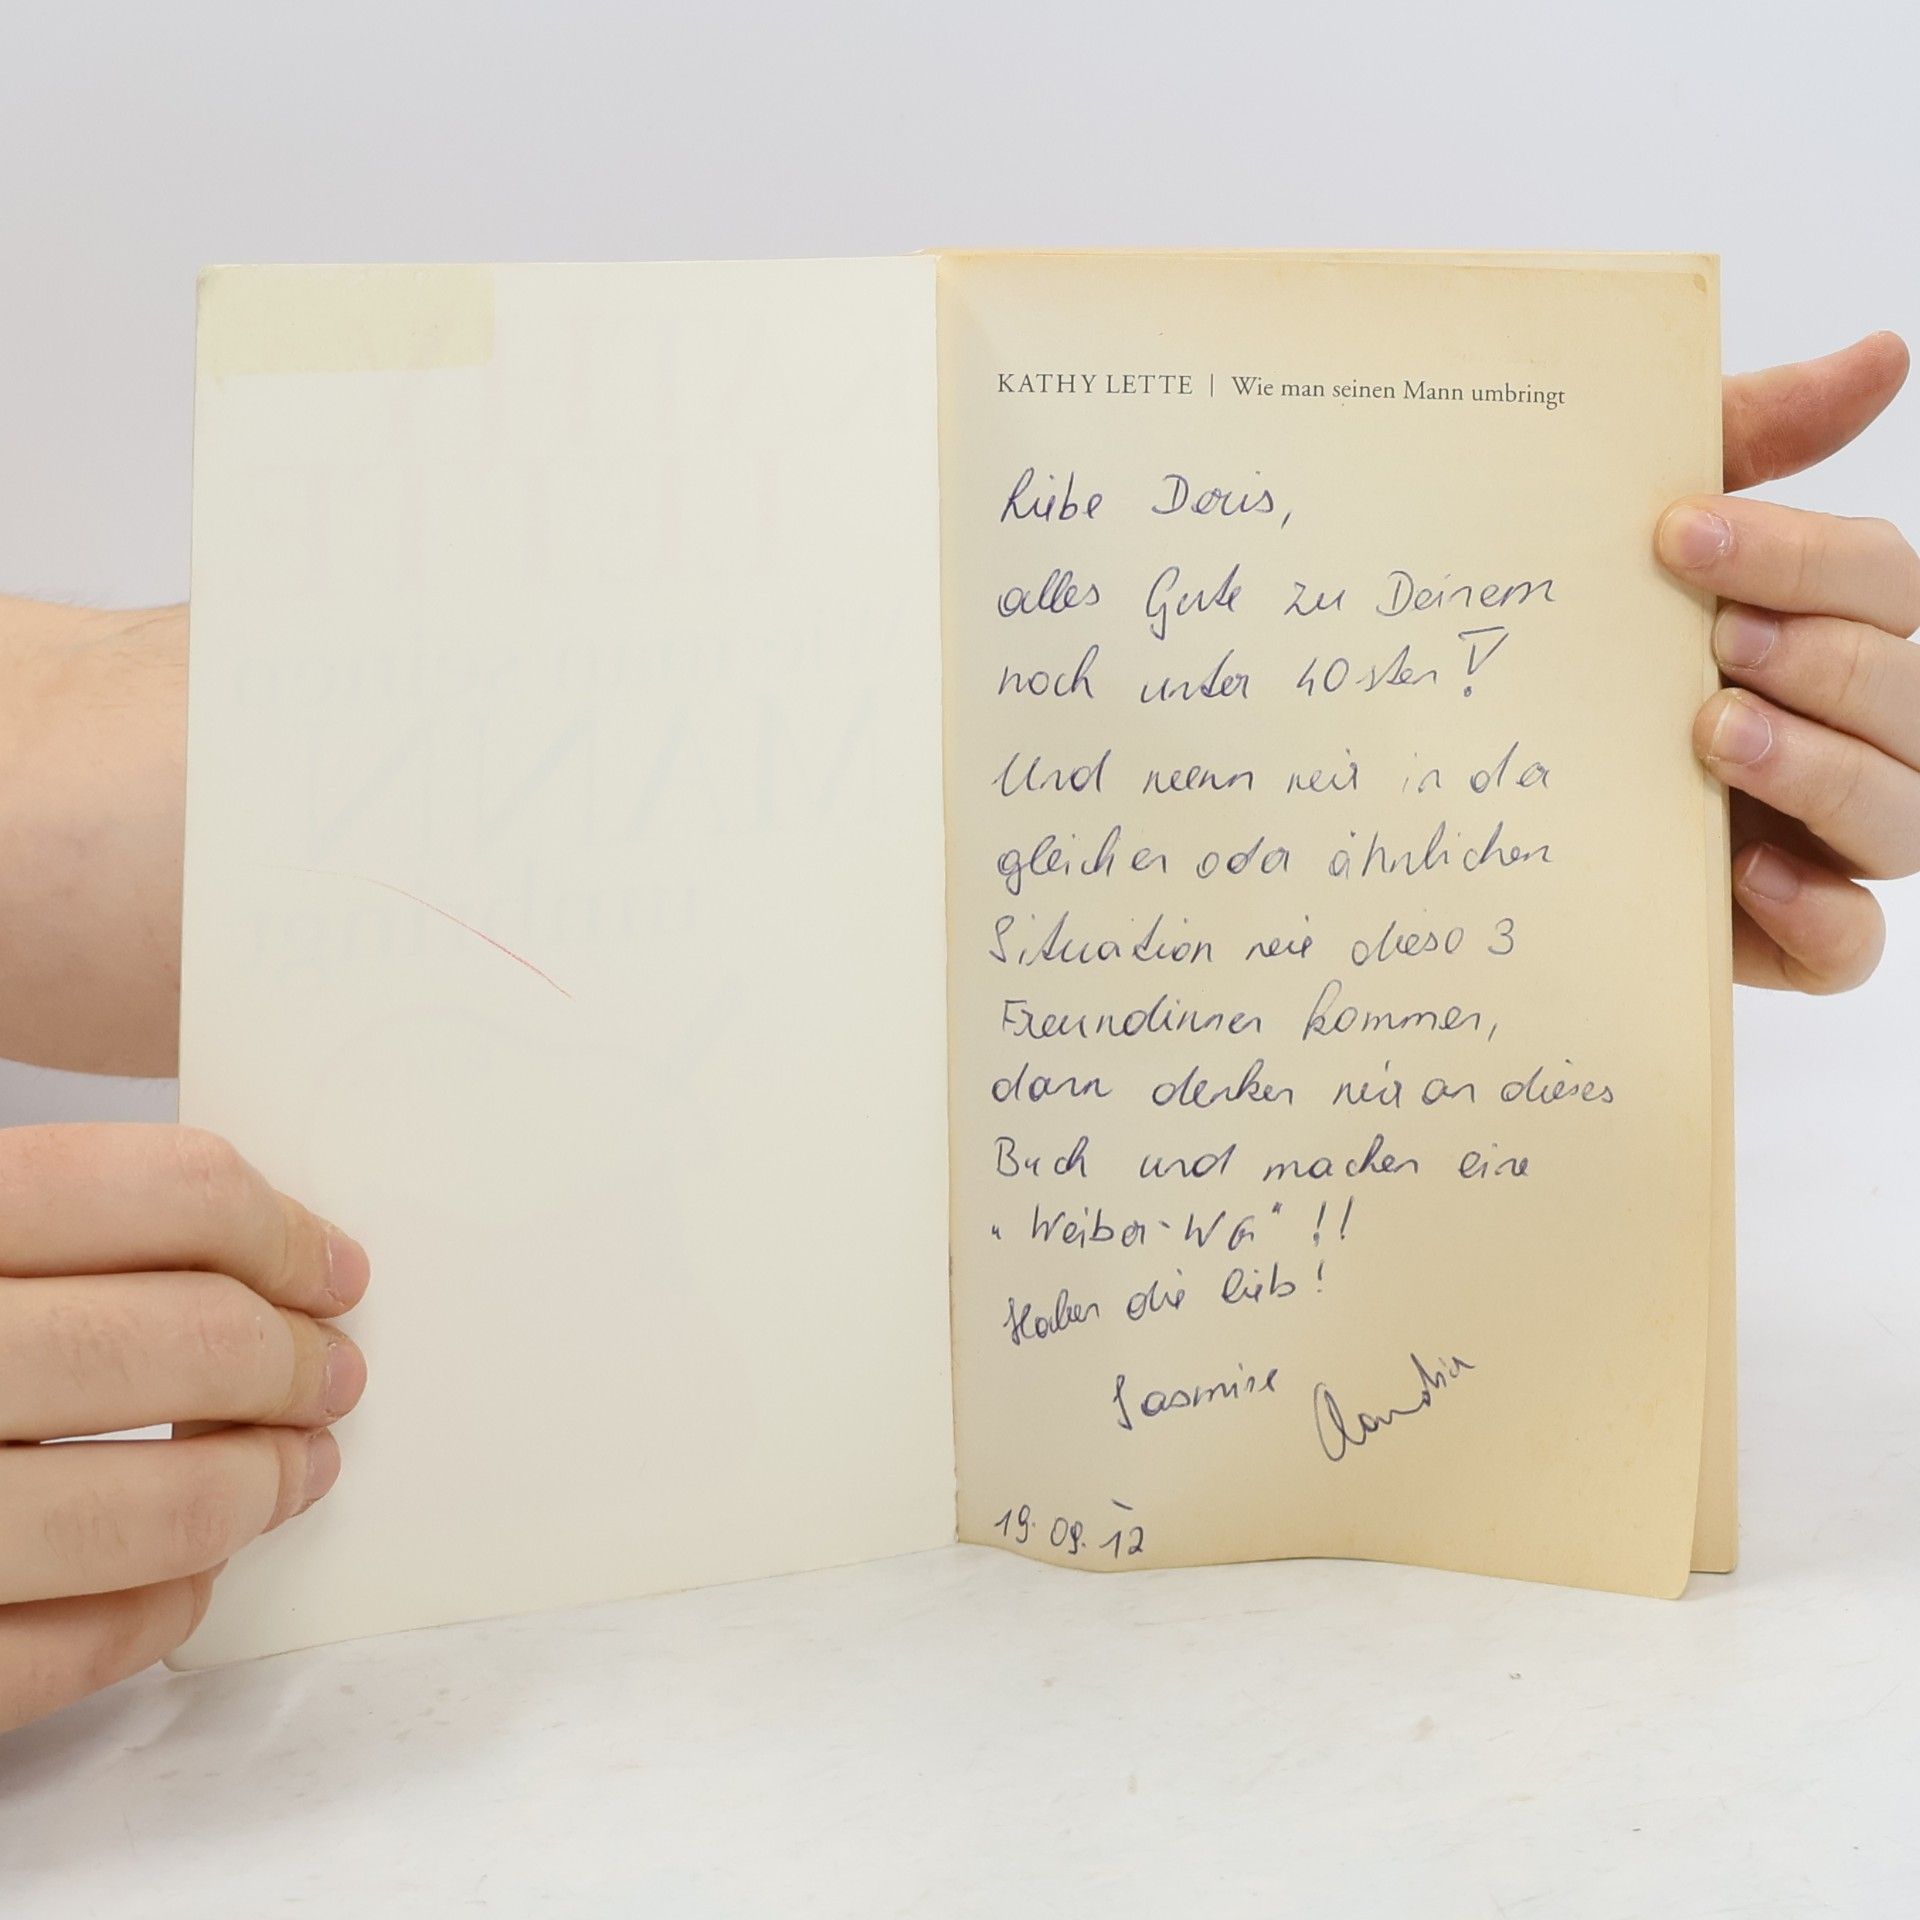 KATHY LETTE | Wie man seinen Mann umbringt
Liebe Doris,
alles Gute zu Deinem
noch unter 40sten!
Und wenn wir in der
gleichen oder ähnlichen
Situation wie diese 3
Freundinnen kommen,
dann denken wir an dieses
Buch und machen eine
„Weiber-WG" !!
Haben die lieb!
Jasmine Claudia
19.09.12